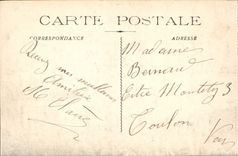 CARTE POSTALE
CORRESPONDANCE
ADRESSE
Recevez mes meilleures
Amitiés
Madame
Bernard
3
Toulon
Var